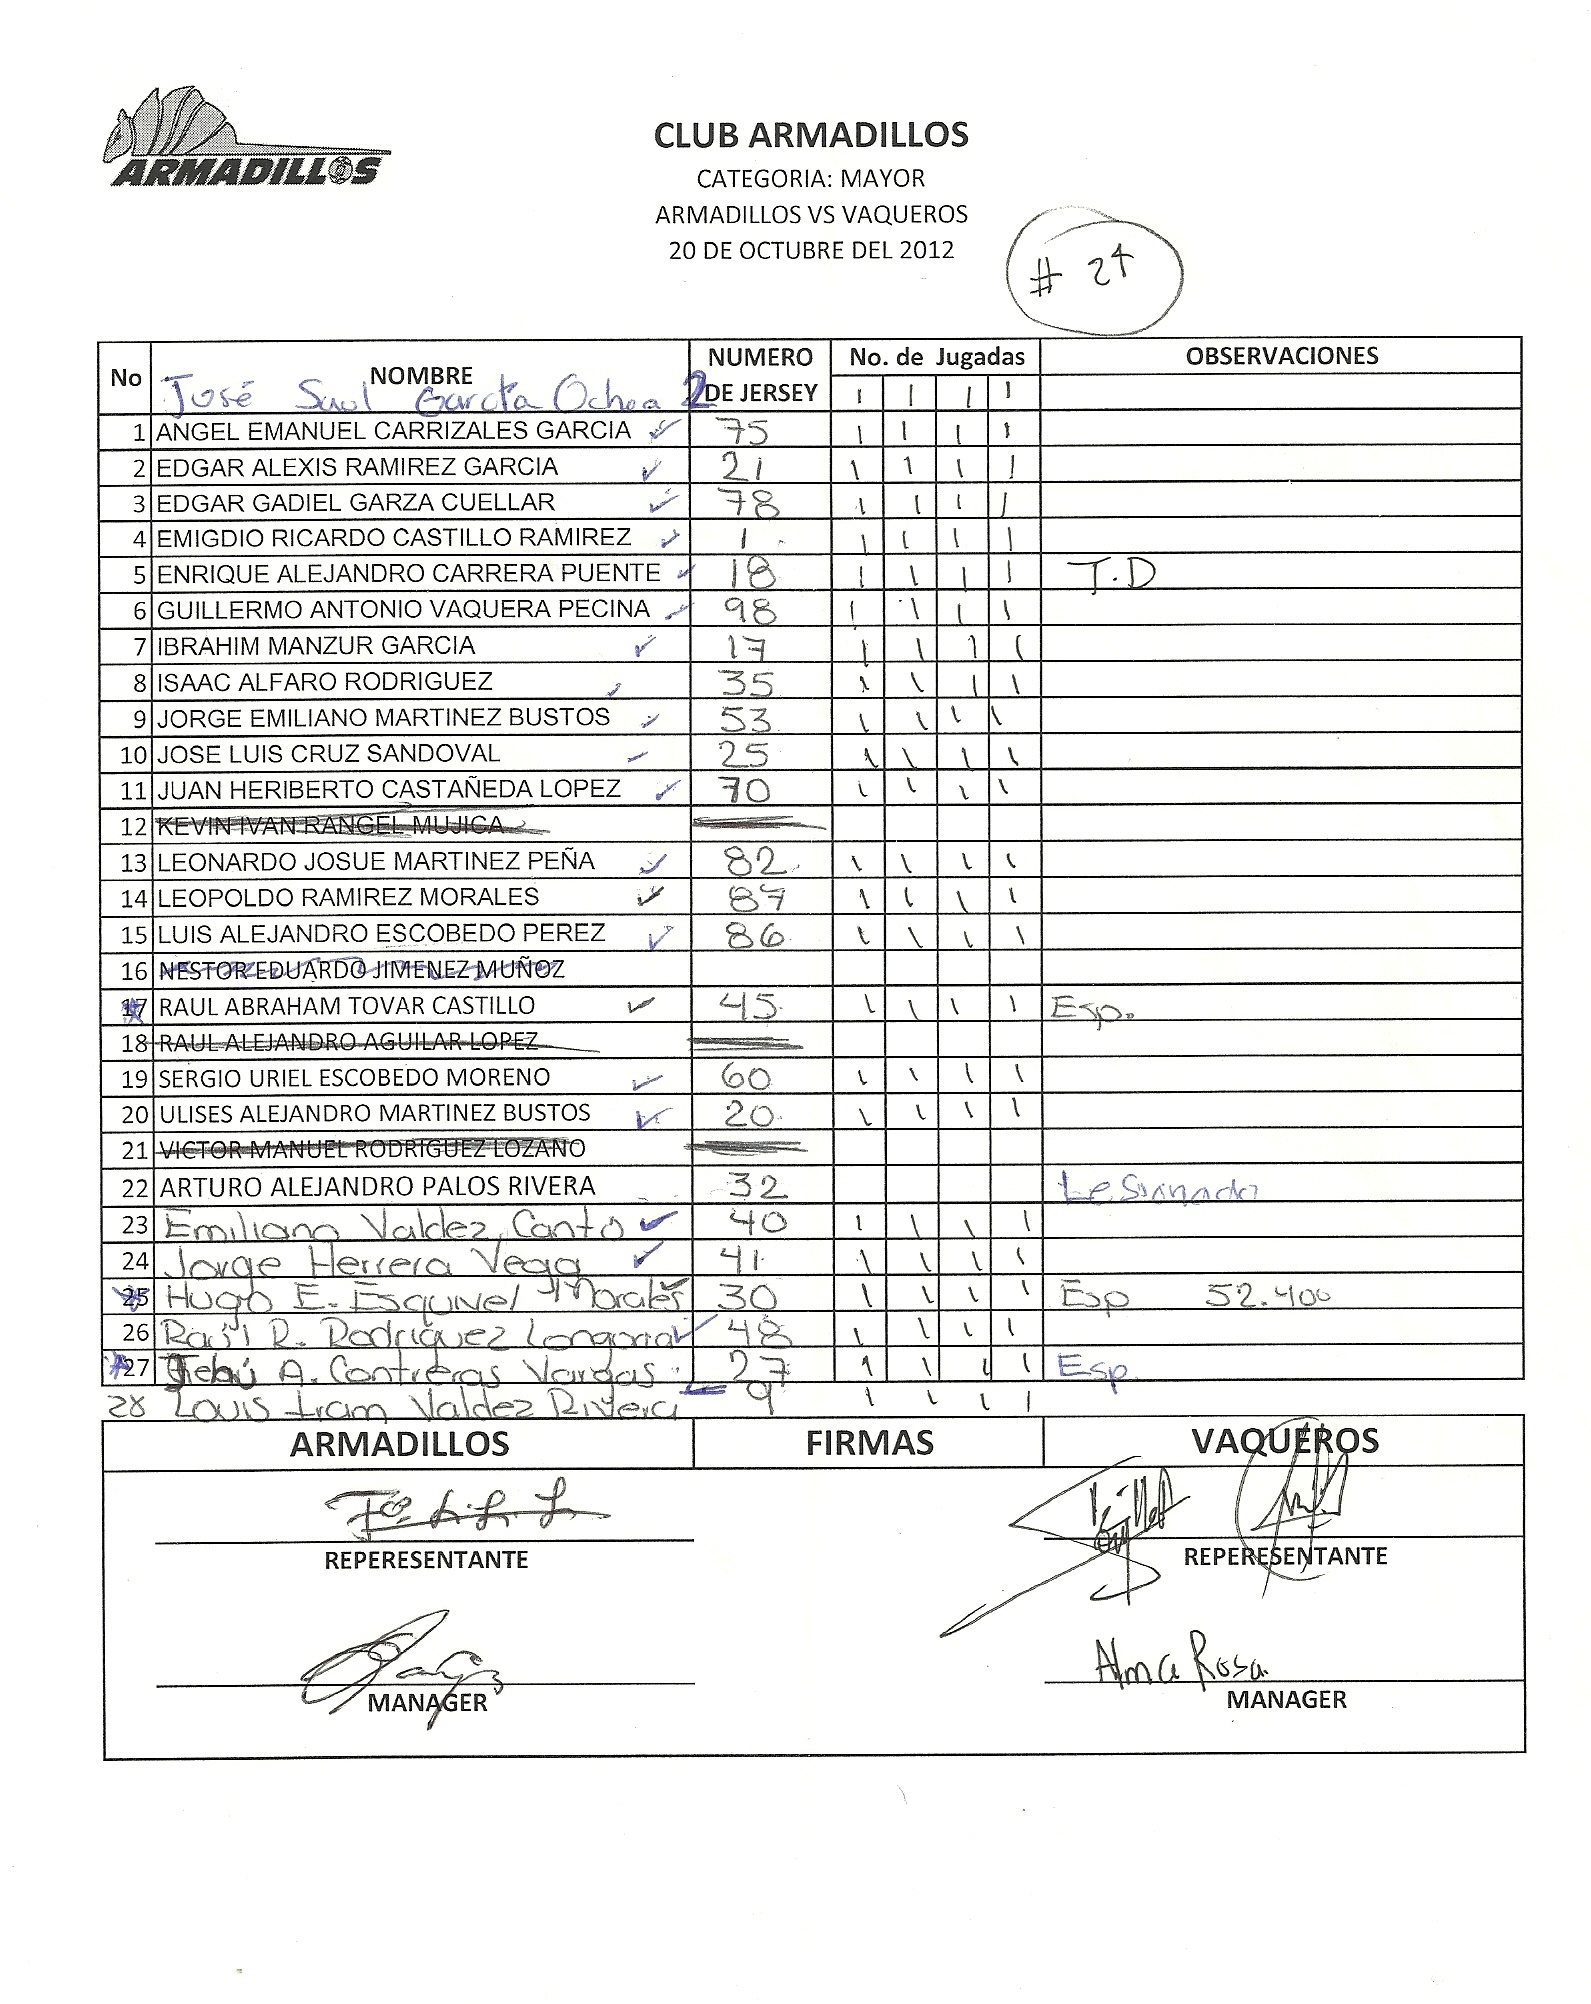 ARMADILLOS
CLUB ARMADILLOS
CATEGORIA: MAYOR
ARMADILLOS VS VAQUEROS
20 DE OCTUBRE DEL 2012
# 24
No NOMBRE NUMERO DE JERSEY No. de Jugadas OBSERVACIONES
José Saul García Ochoa 2 I I I I
1 ANGEL EMANUEL CARRIZALES GARCIA ✓ 75 I I I I
2 EDGAR ALEXIS RAMIREZ GARCIA ✓ 21 I I I I
3 EDGAR GADIEL GARZA CUELLAR ✓ 78 I I I I
4 EMIGDIO RICARDO CASTILLO RAMIREZ ✓ 1 I I I I
5 ENRIQUE ALEJANDRO CARRERA PUENTE ✓ 18 I I I I T.D
6 GUILLERMO ANTONIO VAQUERA PECINA ✓ 98 I I I I
7 IBRAHIM MANZUR GARCIA ✓ 17 I I I I
8 ISAAC ALFARO RODRIGUEZ ✓ 35 I I I I
9 JORGE EMILIANO MARTINEZ BUSTOS ✓ 53 I I I I
10 JOSE LUIS CRUZ SANDOVAL ✓ 25 I I I I
11 JUAN HERIBERTO CASTAÑEDA LOPEZ ✓ 70 I I I I
12 KEVIN IVAN RANGEL MUJICA
13 LEONARDO JOSUE MARTINEZ PEÑA ✓ 82 I I I I
14 LEOPOLDO RAMIREZ MORALES ✓ 87 I I I I
15 LUIS ALEJANDRO ESCOBEDO PEREZ ✓ 86 I I I I
16 NESTOR EDUARDO JIMENEZ MUÑOZ
17 RAUL ABRAHAM TOVAR CASTILLO ✓ 45 I I I I Esp.
18 RAUL ALEJANDRO AGUILAR LOPEZ
19 SERGIO URIEL ESCOBEDO MORENO ✓ 60 I I I I
20 ULISES ALEJANDRO MARTINEZ BUSTOS ✓ 20 I I I I
21 VICTOR MANUEL RODRIGUEZ LOZANO
22 ARTURO ALEJANDRO PALOS RIVERA 32 Lesionado
23 Emiliano Valdez Cantó ✓ 40 I I I I
24 Jorge Herrera Vega ✓ 41 I I I I
25 Hugo E. Esquivel Morales ✓ 30 I I I I Esp 52.400
26 Raúl R. Rodríguez Longoria ✓ 48 I I I I
27 A. Contreras Vargas 27 I I I I Esp.
28 Louis Iram Valdez Rivera 9 I I I I
ARMADILLOS FIRMAS VAQUEROS
REPERESENTANTE REPERESENTANTE
Alma Rosa.
MANAGER MANAGER